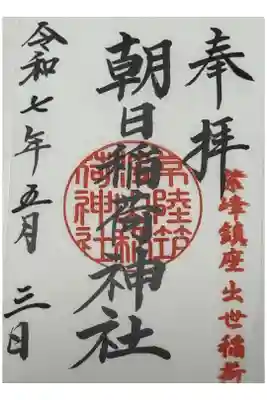 奉拝
紫峰鎮座出世稲荷
朝日稲荷神社
常陸筑
荷神社
令和七年五月三日